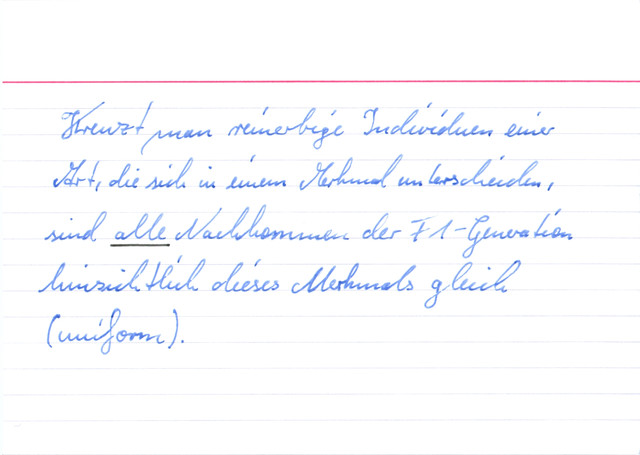 Kreuzt man reinerbige Individuen einer
Art, die sich in einem Merkmal unterscheiden,
sind alle Nachkommen der F1-Generation
hinsichtlich dieses Merkmals gleich
(uniform).